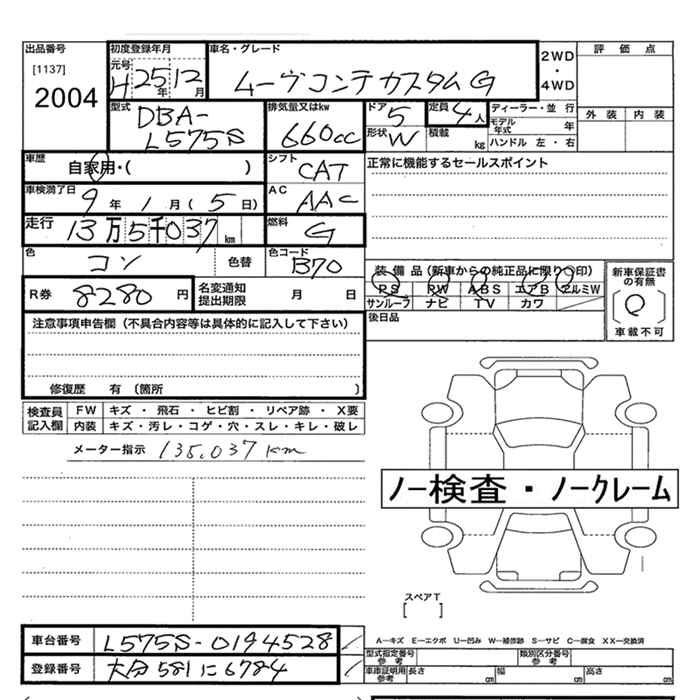 出品番号
[1137]
2004
初度登録年月
元号
H 25年 12月
車名・グレード
ムーヴコンテカスタムG
2WD
・
4WD
評価点
外装 内装
型式
DBA-
L575S
排気量又はkw
660cc
ドア 5
形状 W
定員 4人
積載 kg
ディーラー・並行
モデル年式 年
ハンドル 左・右
車歴
自家用・( )
シフト
CAT
正常に機能するセールスポイント
車検満了日
9年 1月(5日)
AC
AAC
走行
13万5千037km
燃料
G
色
コン
色替
色コード
B70
装備品(新車からの純正品に限り○印)
PS PW ABS エアB アルミW
サンルーフ ナビ TV カワ
新車保証書
の有無
[○]
車載不可
R券 8280円
名変通知
提出期限
月 日
後日品
注意事項申告欄(不具合内容等は具体的に記入して下さい)
修復歴 有 〔箇所 〕
検査員
記入欄
FW キズ・飛石・ヒビ割・リペア跡・X要
内装 キズ・汚レ・コゲ・穴・スレ・キレ・破レ
メーター指示 135,037km
ノー検査・ノークレーム
スペアT
[ ]
車台番号 L575S-0194528
登録番号 大分581に6784
A-キズ E-エクボ U-凹み W-補修跡 S-サビ C-腐食 XX-交換済
型式指定番号
参考
類別区分番号
参考
車庫証明用
参考
長さ cm 幅 cm 高さ cm